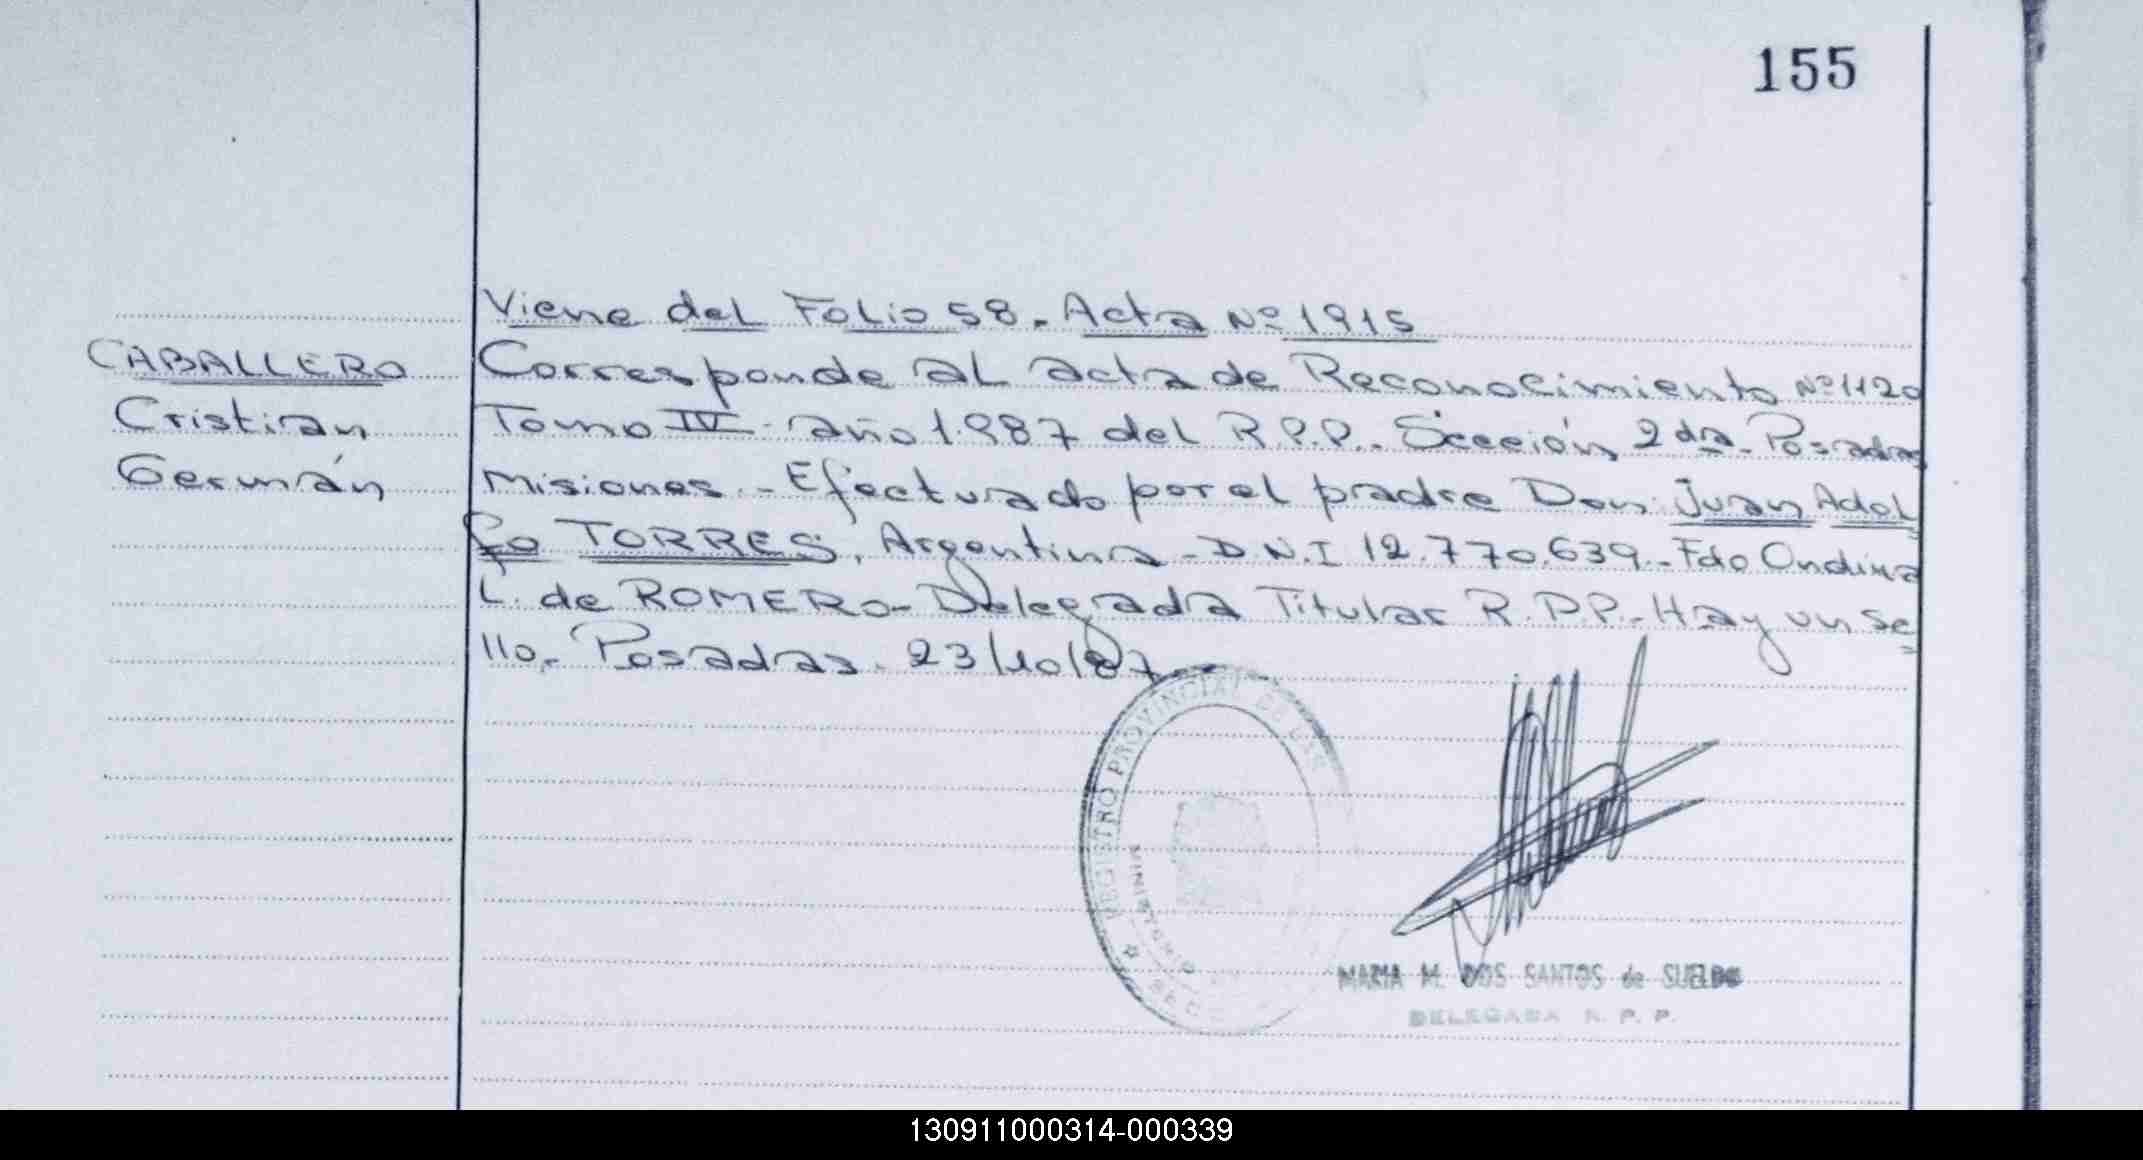 155
Viene del Folio 58. Acta Nº 1915
CABALLERO
Cristian
Germán
Corresponde al acta de Reconocimiento Nº 1120
Tomo IV - año 1.987 del R.P.P.. Sección 2da - Posadas
Misiones - Efectuado por el padre Don Juan Adol
fo TORRES, Argentina - D.N.I 12.770.639.- Fdo Ondina
L. de ROMERO - Delegada Titular R.P.P. - Hay un se
llo. Posadas. 23/10/87
REGISTRO PROVINCIAL DE LAS
MINISTERIO
MARIA M. DOS SANTOS de SUELDO
DELEGADA R. P. P.
130911000314-000339